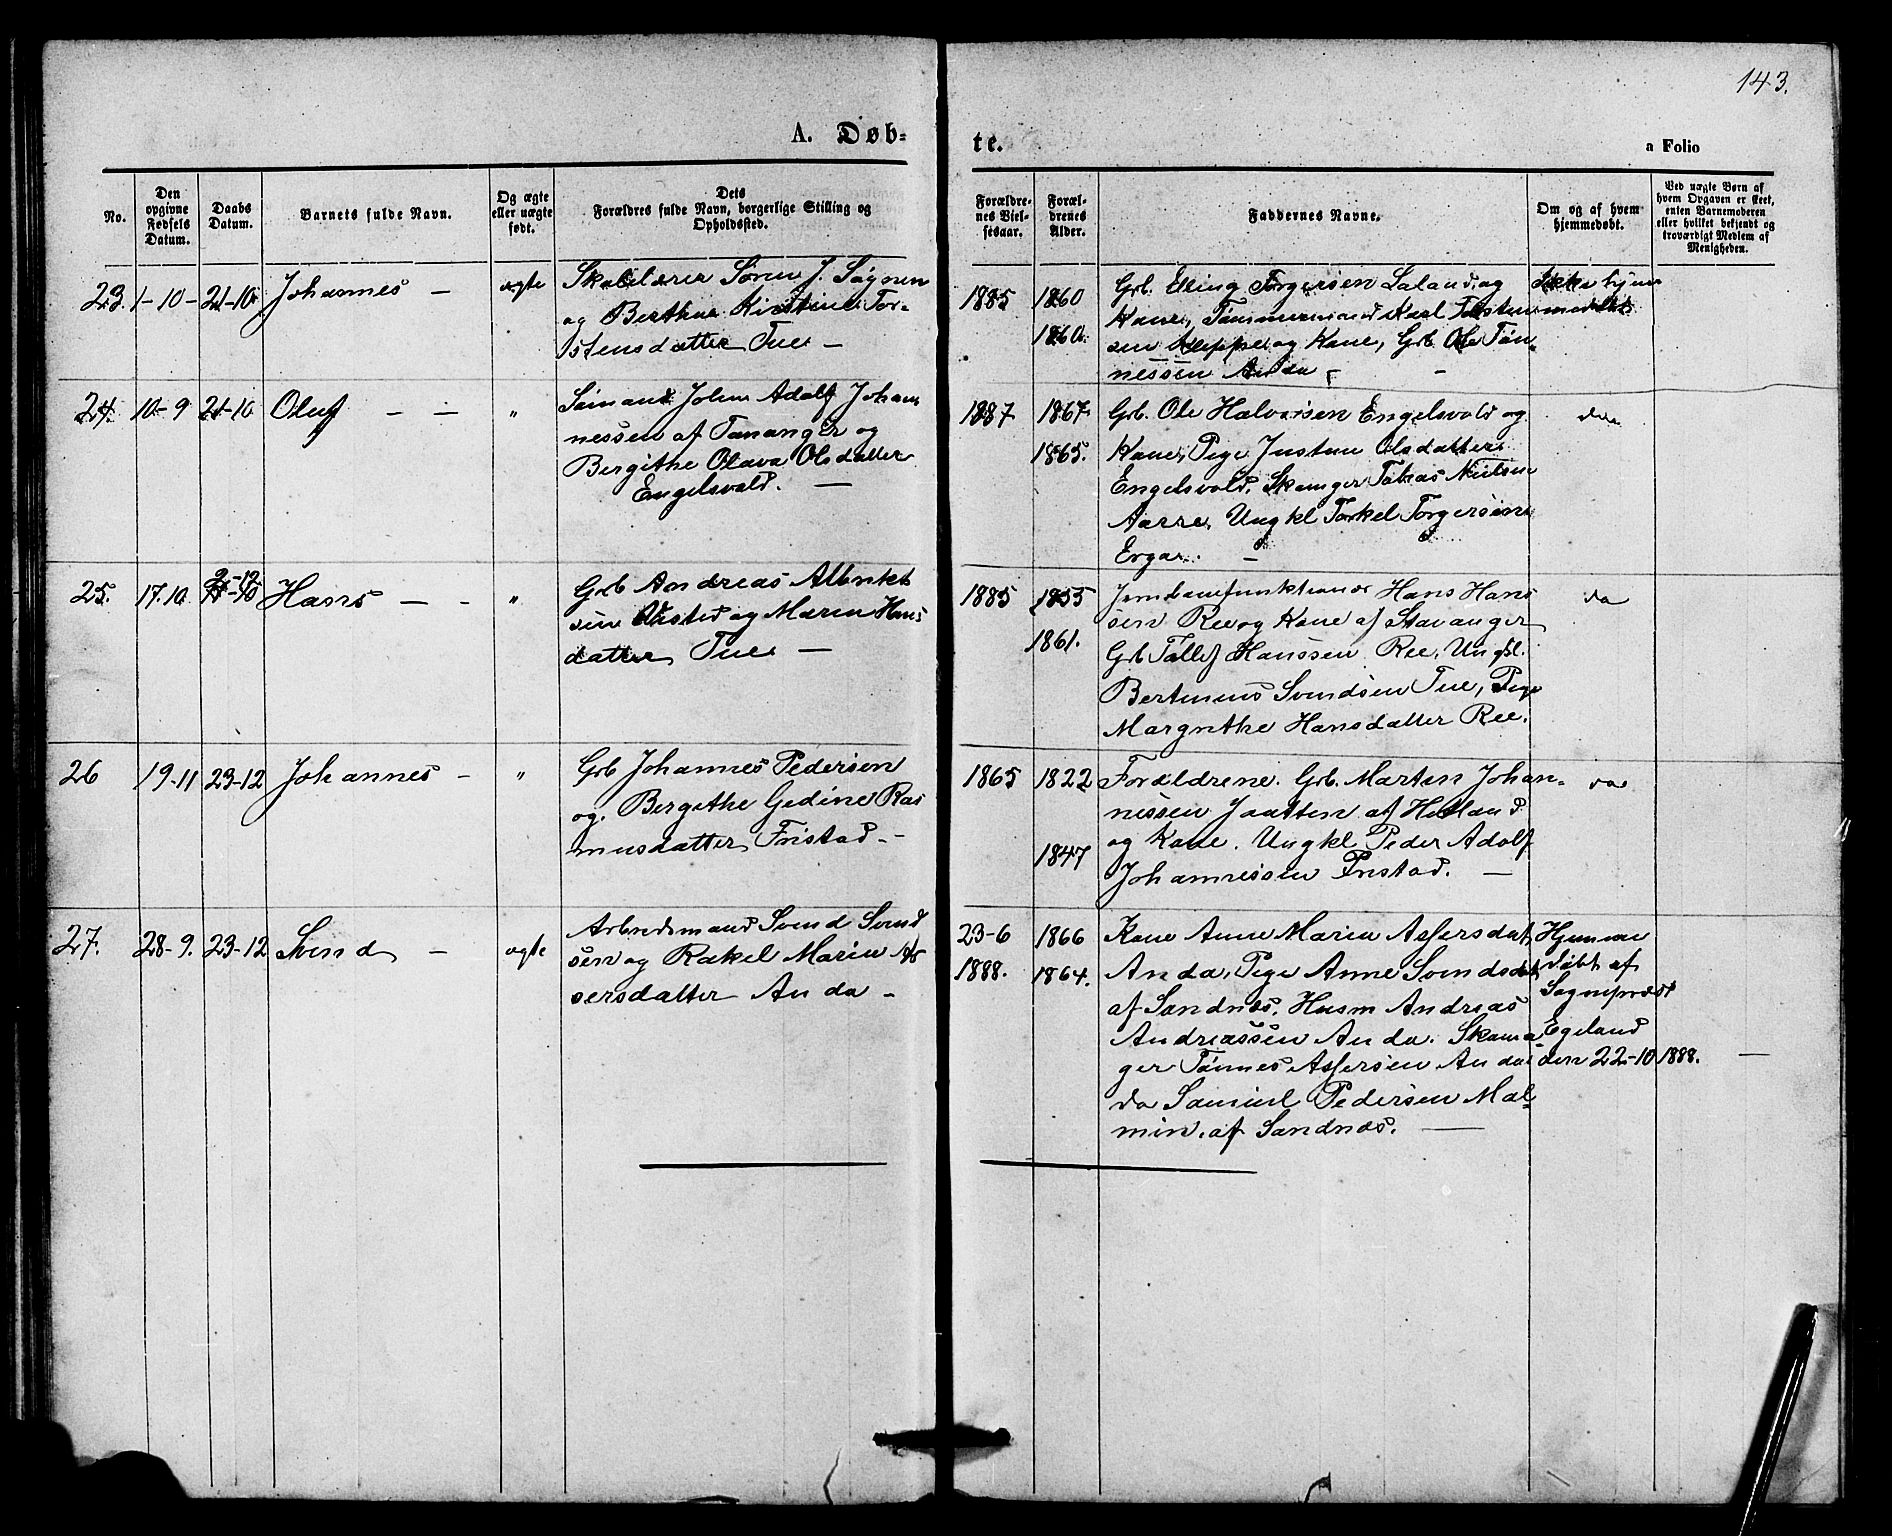 143.
A. Døb-
te.
a Folio
No.
Den
opgivne
Fødsels
Datum.
Daabs
Datum.
Barnets fulde Navn.
Og ægte
eller uægte
født.
Dets
Forældres fulde Navn, borgerlige Stilling og
Opholdssted.
Forældre-
nes Viel-
sesaar.
Foræl-
drenes
Alder.
Faddernes Navne.
Om og af hvem
hjemmedøbt.
Ved uægte Børn af
hvem Opgaven er skeet,
enten Barnemoderen
eller hvilket bekjendt og
troværdigt Medlem af
Menigheden.
23. 1-10- 21-10 Johannes - ægte
Skolelærer Sören J.
og Berthe Kirstine Tor-
stensdatter Tue -
1885 1860
1860
Grb. Elling Torgersen Laland og
Kone, Tømmermand Karl
sen Kleppe og Kone, Grb. Ole Tön-
nessen Anda - -
Ikke hjem
24. 10-9 21-10 Oluf - - "
Sømand John Adolf Johan
nessen af Tananger og
Bergithe Olava Olsdatter
Engelsvold. -
1887 1867
1865.
Grb. Ole Halvorsen Engelsvold og
Kone, Pige Justine Olsdatter
Engelsvold, Skomager Tobias Nielsen
Aarre, Ungkl Torkel Torgersen
Ergar. -
da
25. 17.10 2-12 Hans - - "
Grb Andreas
sen og Maren Hans
datter Tue -
1885 1855
1861.
Jernbanefunktionær Hans Hans
sen Ree og Kone af Stavanger
Grb Tollef Hanssen Ree, Ungkl.
Bertinius Svendsen Tue, Pige
Margrethe Hansdatter Ree.
da
26 19-11 23-12 Johannes - "
Grb Johannes Pedersen
og. Bergithe Gedine Ras
musdatter Fristad -
1865 1822
1847
Forældrene. Grb. Marten Johan-
nessen Jaatten af Hetland
og Kone. Ungkl Peder Adolf
Johannessen Fristad. -
da
27. 28-9. 23-12 Svend - ægte
Arbeidsmand Svend Svend
sen og Rakel Marie As
sersdatter Anda -
23-6
1888.
1866
1864.
Kone Anne Marie Assersdat
Anda, Pige Anne Svendsdat
af Sandnæs, Husm Andreas
Andreassen Anda. Skoma
ger Tönnes Assersen Anda
do Samuel Pedersen Mal-
min. af Sandnæs. -
Hjemme
døbt af
Sognepræst
Egeland
den 22-10 1888. -